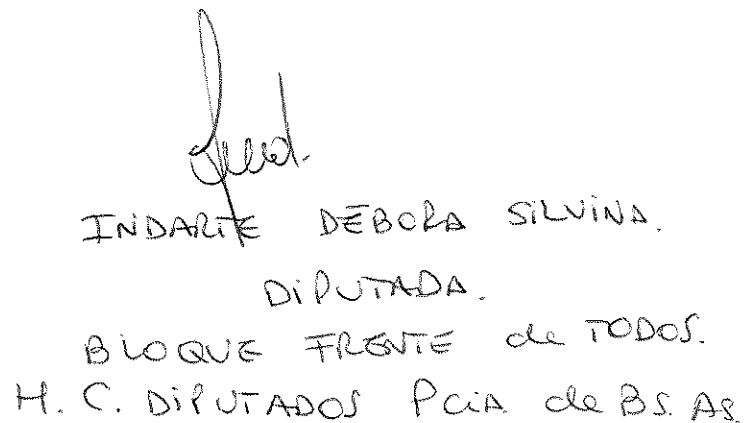 INDARTE DEBORA SILVINA.
DIPUTADA.
BLOQUE FRENTE de TODOS.
H. C. DIPUTADOS PCIA de BS. AS.